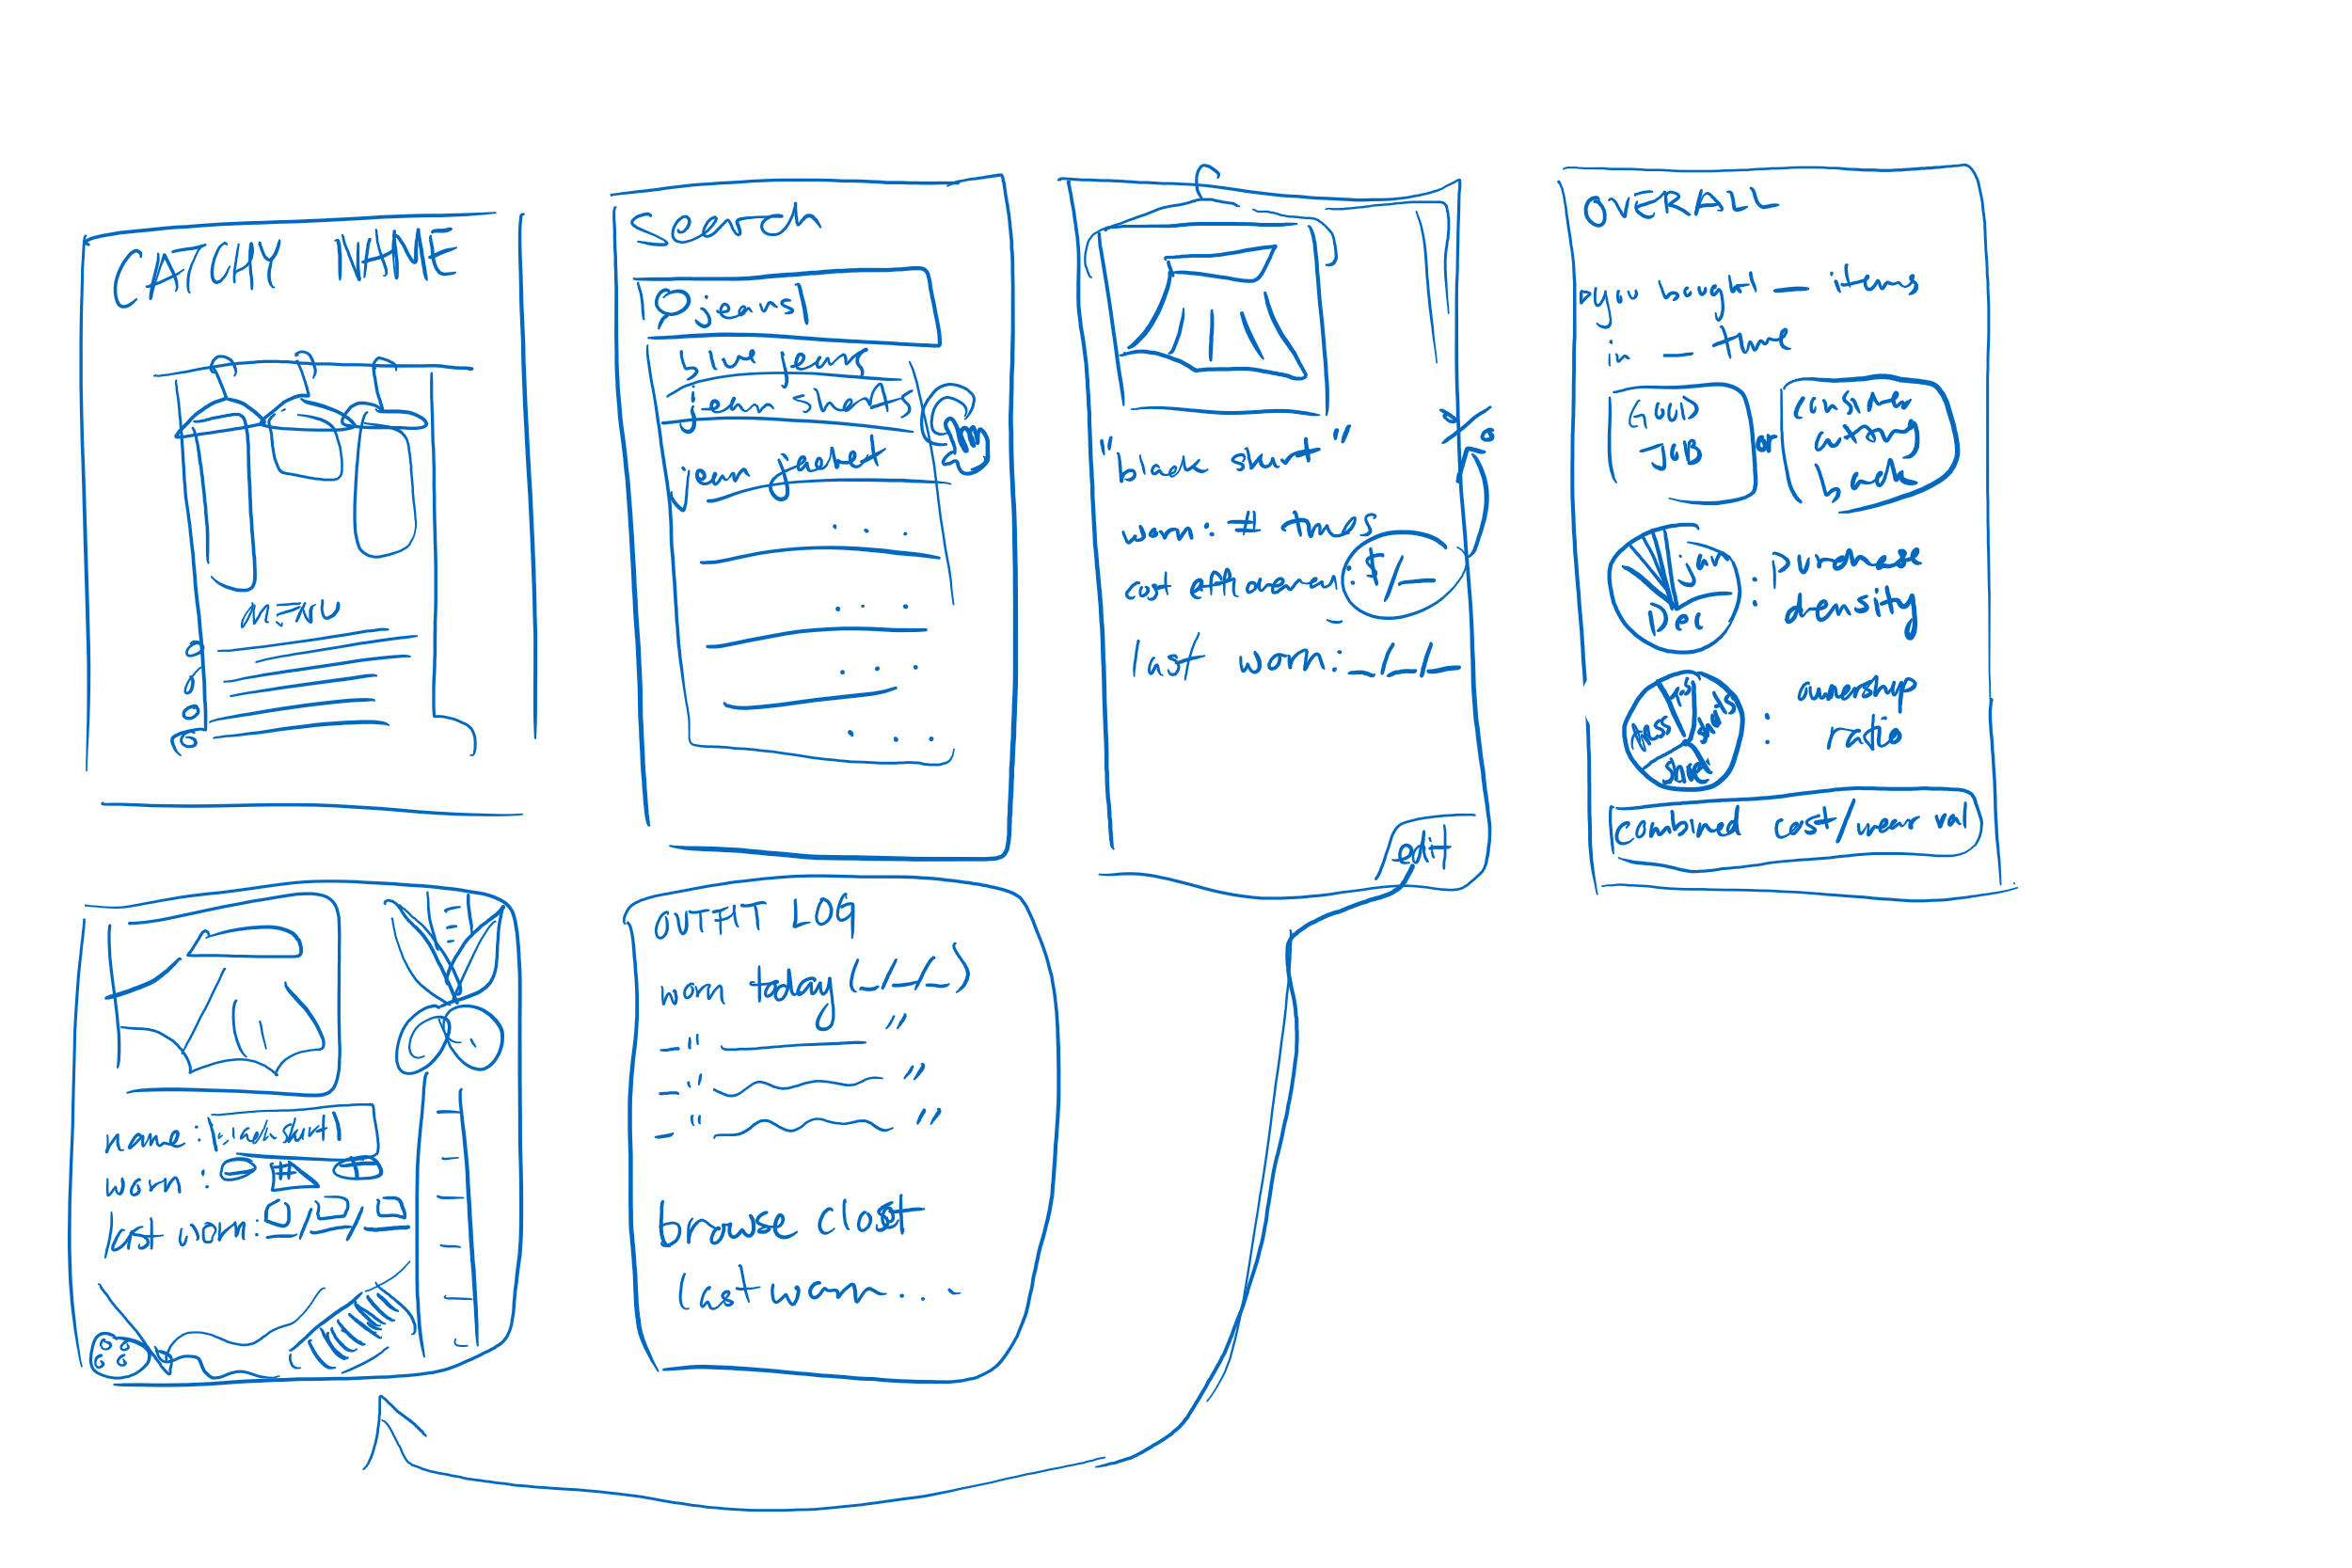 CATCHY NAME
MENU
Search
jeans
blue jeans
jean shorts
jean jacket
"black skirt"
worn: # times
cost $/
last worn: _/_/_
edit
OVERALL
you bought — items
in — time
GOOD JOB
or
bad
Jan
Dec
: purchase density
: ownership ratio
combined cost/wear val
name: black skirt
worn: #
last worn: _/_/_
OUTFIT LOG
worn today (_/_/_)
_ " "
_ " "
_ " "
browse closet
last worn...